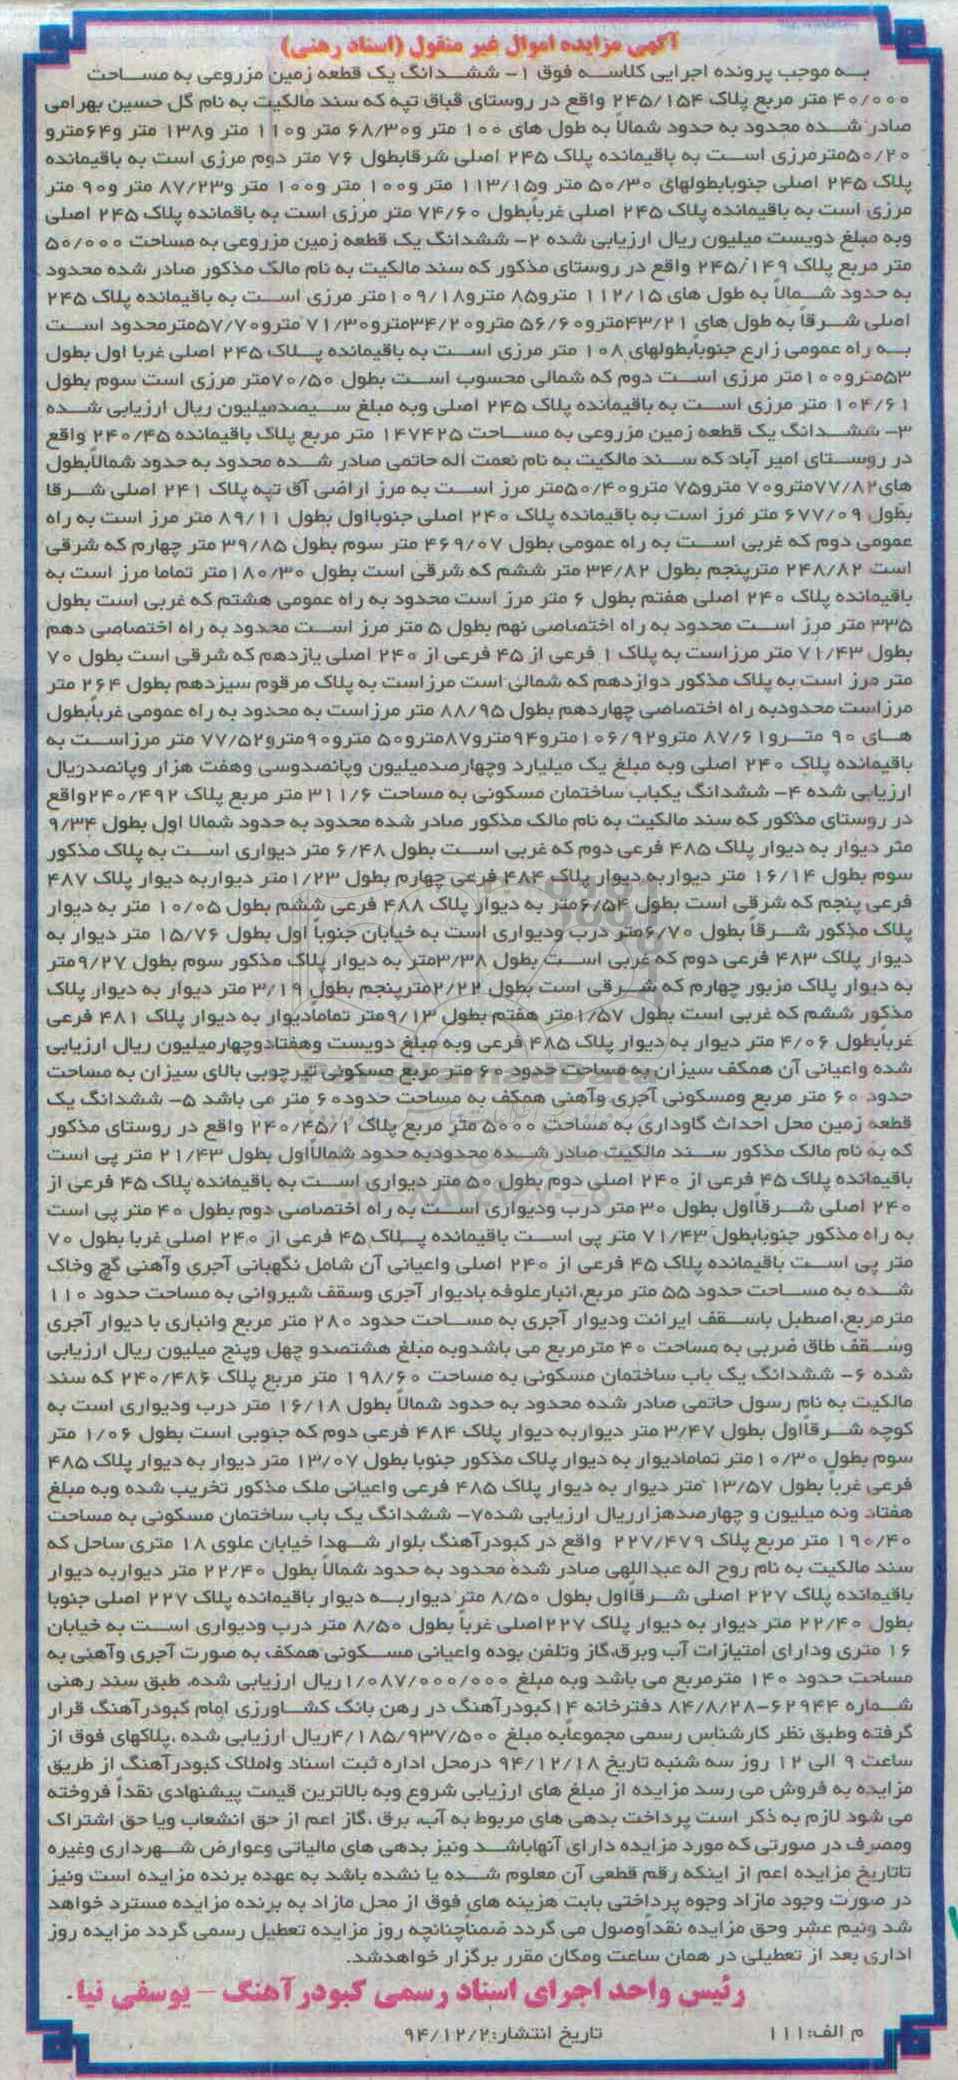 آگهی مزایده اموال غیر منقول (اسناد رهنی)
به موجب پرونده اجرایی کلاسه فوق ۱- ششدانگ یک قطعه زمین مزروعی به مساحت
۴۰/۰۰۰ متر مربع پلاک ۲۴۵/۱۵۴ واقع در روستای قباق تپه که سند مالکیت به نام گل حسین بهرامی
صادر شده محدود به حدود شمالاً به طول های ۱۰۰ متر و۶۸/۳۰ متر و۱۱۰ متر و۱۳۸ متر و۶۴مترو
۵۰/۲۰مترمرزی است به باقیمانده پلاک ۲۴۵ اصلی شرقابطول ۷۶ متر دوم مرزی است به باقیمانده
پلاک ۲۴۵ اصلی جنوبابطولهای ۵۰/۳۰ متر و۱۱۳/۱۵ متر و۱۰۰ متر و۱۰۰ متر و۸۷/۲۳ متر و۹۰ متر
مرزی است به باقیمانده پلاک ۲۴۵ اصلی غرباًبطول ۷۴/۶۰ متر مرزی است به باقمانده پلاک ۲۴۵ اصلی
وبه مبلغ دویست میلیون ریال ارزیابی شده ۲- ششدانگ یک قطعه زمین مزروعی به مساحت ۵۰/۰۰۰
متر مربع پلاک ۲۴۵/۱۴۹ واقع در روستای مذکور که سند مالکیت به نام مالک مذکور صادر شده محدود
به حدود شمالاً به طول های ۱۱۲/۱۵ مترو۸۵ مترو۱۰۹/۱۸متر مرزی است به باقیمانده پلاک ۲۴۵
اصلی شرقاً به طول های ۴۳/۲۱مترو۵۶/۶۰ مترو۳۴/۲۰مترو۷۱/۳۰ مترو۵۷/۷۰مترمحدود است
به راه عمومی زارع جنوباًبطولهای ۱۰۸ متر مرزی است به باقیمانده پلاک ۲۴۵ اصلی غربا اول بطول
۵۳مترو۱۰۰متر مرزی است دوم که شمالی محسوب است بطول ۷۰/۵۰متر مرزی است سوم بطول
۱۰۴/۶۱ متر مرزی است به باقیمانده پلاک ۲۴۵ اصلی وبه مبلغ سیصدمیلیون ریال ارزیابی شده
۳- ششدانگ یک قطعه زمین مزروعی به مساحت ۱۴۷۴۲۵ متر مربع پلاک باقیمانده ۲۴۰/۴۵ واقع
در روستای امیر آباد که سند مالکیت به نام نعمت اله حاتمی صادر شده محدود به حدود شمالاًبطول
های۷۷/۸۲مترو۷۰ مترو۷۵ مترو۵۰/۴۰متر مرز است به مرز اراضی آق تپه پلاک ۲۴۱ اصلی شرقا
بطول ۶۷۷/۰۹ متر مرز است به باقیمانده پلاک ۲۴۰ اصلی جنوبااول بطول ۸۹/۱۱ متر مرز است به راه
عمومی دوم که غربی است به راه عمومی بطول ۴۶۹/۰۷ متر سوم بطول ۳۹/۸۵ متر چهارم که شرقی
است ۲۴۸/۸۲ مترپنجم بطول ۳۴/۸۲ متر ششم که شرقی است بطول ۱۸۰/۳۰متر تماما مرز است به
باقیمانده پلاک ۲۴۰ اصلی هفتم بطول ۶ متر مرز است محدود به راه عمومی هشتم که غربی است بطول
۳۳۵ متر مرز است محدود به راه اختصاصی نهم بطول ۵ متر مرز است محدود به راه اختصاصی دهم
بطول ۷۱/۴۳ متر مرزاست به پلاک ۱ فرعی از ۴۵ فرعی از ۲۴۰ اصلی یازدهم که شرقی است بطول ۷۰
متر مرز است به پلاک مذکور دوازدهم که شمالی است مرزاست به پلاک مرقوم سیزدهم بطول ۲۶۴ متر
مرزاست محدودبه راه اختصاصی چهاردهم بطول ۸۸/۹۵ متر مرزاست به محدود به راه عمومی غرباًبطول
های ۹۰ مترو۸۷/۶۱ مترو۱۰۶/۹۲مترو۹۴مترو۸۷مترو۵۰ مترو۹۰مترو۷۷/۵۲ متر مرزاست به
باقیمانده پلاک ۲۴۰ اصلی وبه مبلغ یک میلیارد وچهارصدمیلیون وپانصدوسی وهفت هزار وپانصدریال
ارزیابی شده ۴- ششدانگ یکباب ساختمان مسکونی به مساحت ۳۱۱/۶ متر مربع پلاک ۲۴۰/۴۹۲واقع
در روستای مذکور که سند مالکیت به نام مالک مذکور صادر شده محدود به حدود شمالا اول بطول ۹/۳۴
متر دیوار به دیوار پلاک ۴۸۵ فرعی دوم که غربی است بطول ۶/۴۸ متر دیواری است به پلاک مذکور
سوم بطول ۱۶/۱۴ متر دیواربه دیوار پلاک ۴۸۴ فرعی چهارم بطول ۱/۲۳متر دیواربه دیوار پلاک ۴۸۷
فرعی پنجم که شرقی است بطول ۶/۵۴متر به دیوار پلاک ۴۸۸ فرعی ششم بطول ۱۰/۰۵ متر به دیوار
پلاک مذکور شرقاً بطول ۶/۷۰متر درب ودیواری است به خیابان جنوباً اول بطول ۱۵/۷۶ متر دیوار به
دیوار پلاک ۴۸۳ فرعی دوم که غربی است بطول ۳/۳۸متر به دیوار پلاک مذکور سوم بطول ۹/۲۷متر
به دیوار پلاک مزبور چهارم که شرقی است بطول ۲/۲۲مترپنجم بطول ۳/۱۹ متر دیوار به دیوار پلاک
مذکور ششم که غربی است بطول ۱/۵۷متر هفتم بطول ۹/۱۳متر تمامادیوار به دیوار پلاک ۴۸۱ فرعی
غرباًبطول ۴/۰۶ متر دیوار به دیوار پلاک ۴۸۵ فرعی وبه مبلغ دویست وهفتادوچهارمیلیون ریال ارزیابی
شده واعیانی آن همکف سیزان به مساحت حدود ۶۰ متر مربع مسکونی تیرچوبی بالای سیزان به مساحت
حدود ۶۰ متر مربع ومسکونی آجری وآهنی همکف به مساحت حدود۶۰ متر می باشد ۵- ششدانگ یک
قطعه زمین محل احداث گاوداری به مساحت ۵۰۰۰ متر مربع پلاک ۲۴۰/۴۵/۱ واقع در روستای مذکور
که به نام مالک مذکور سند مالکیت صادر شده محدودبه حدود شمالاًاول بطول ۲۱/۴۳ متر پی است
باقیمانده پلاک ۴۵ فرعی از ۲۴۰ اصلی دوم بطول ۵۰ متر دیواری است به باقیمانده پلاک ۴۵ فرعی از
۲۴۰ اصلی شرقاًاول بطول ۳۰ متر درب ودیواری است به راه اختصاصی دوم بطول ۴۰ متر پی است
به راه مذکور جنوبابطول ۷۱/۴۳ متر پی است باقیمانده پلاک ۴۵ فرعی از ۲۴۰ اصلی غربا بطول ۷۰
متر پی است باقیمانده پلاک ۴۵ فرعی از ۲۴۰ اصلی واعیانی آن شامل نگهبانی آجری وآهنی گچ وخاک
شده به مساحت حدود ۵۵ متر مربع،انبارعلوفه بادیوار آجری وسقف شیروانی به مساحت حدود ۱۱۰
مترمربع،اصطبل باسقف ایرانت ودیوار آجری به مساحت حدود ۲۸۰ متر مربع وانباری با دیوار آجری
وسقف طاق ضربی به مساحت ۴۰ مترمربع می باشدوبه مبلغ هشتصدو چهل وپنج میلیون ریال ارزیابی
شده ۶- ششدانگ یک باب ساختمان مسکونی به مساحت ۱۹۸/۶۰ متر مربع پلاک ۲۴۰/۴۸۶ که سند
مالکیت به نام رسول حاتمی صادر شده محدود به حدود شمالاً بطول ۱۶/۱۸ متر درب ودیواری است به
کوچه شرقاًاول بطول ۳/۴۷ متر دیواربه دیوار پلاک ۴۸۴ فرعی دوم که جنوبی است بطول ۱/۰۶ متر
سوم بطول ۱۰/۳۰متر تمامادیوار به دیوار پلاک مذکور جنوبا بطول ۱۳/۰۷ متر دیوار به دیوار پلاک ۴۸۵
فرعی غرباً بطول ۱۳/۵۷ متر دیوار به دیوار پلاک ۴۸۵ فرعی واعیانی ملک مذکور تخریب شده وبه مبلغ
هفتاد ونه میلیون و چهارصدهزارریال ارزیابی شده۷- ششدانگ یک باب ساختمان مسکونی به مساحت
۱۹۰/۴۰ متر مربع پلاک ۲۲۷/۴۷۹ واقع در کبودرآهنگ بلوار شهدا خیابان علوی ۱۸ متری ساحل که
سند مالکیت به نام روح اله عبداللهی صادر شده محدود به حدود شمالاً بطول ۲۲/۴۰ متر دیواربه دیوار
باقیمانده پلاک ۲۲۷ اصلی شرقاًاول بطول ۸/۵۰ متر دیواربه دیوار باقیمانده پلاک ۲۲۷ اصلی جنوبا
بطول ۲۲/۴۰ متر دیوار به دیوار پلاک ۲۲۷اصلی غرباً بطول ۸/۵۰ متر درب ودیواری است به خیابان
۱۶ متری ودارای امتیازات آب وبرق،گاز وتلفن بوده واعیانی مسکونی همکف به صورت آجری وآهنی به
مساحت حدود ۱۴۰ مترمربع می باشد وبه مبلغ ۱/۰۸۷/۰۰۰/۰۰۰ریال ارزیابی شده، طبق سند رهنی
شماره ۶۲۹۴۴-۸۴/۸/۲۸ دفترخانه ۱۴کبودرآهنگ در رهن بانک کشاورزی امام کبودرآهنگ قرار
گرفته وطبق نظر کارشناس رسمی مجموعابه مبلغ ۴/۱۸۵/۹۳۷/۵۰۰ریال ارزیابی شده ،پلاکهای فوق از
ساعت ۹ الی ۱۲ روز سه شنبه تاریخ ۹۴/۱۲/۱۸ درمحل اداره ثبت اسناد واملاک کبودرآهنگ از طریق
مزایده به فروش می رسد مزایده از مبلغ های ارزیابی شروع وبه بالاترین قیمت پیشنهادی نقداً فروخته
می شود لازم به ذکر است پرداخت بدهی های مربوط به آب، برق ،گاز اعم از حق انشعاب ویا حق اشتراک
ومصرف در صورتی که مورد مزایده دارای آنهاباشد ونیز بدهی های مالیاتی وعوارض شهرداری وغیره
تاتاریخ مزایده اعم از اینکه رقم قطعی آن معلوم شده یا نشده باشد به عهده برنده مزایده است ونیز
در صورت وجود مازاد وجوه پرداختی بابت هزینه های فوق از محل مازاد به برنده مزایده مسترد خواهد
شد ونیم عشر وحق مزایده نقداًوصول می گردد ضمناچنانچه روز مزایده تعطیل رسمی گردد مزایده روز
اداری بعد از تعطیلی در همان ساعت ومکان مقرر برگزار خواهدشد.
رئیس واحد اجرای اسناد رسمی کبودرآهنگ - یوسفی نیا.
م الف:۱۱۱
تاریخ انتشار:۹۴/۱۲/۲